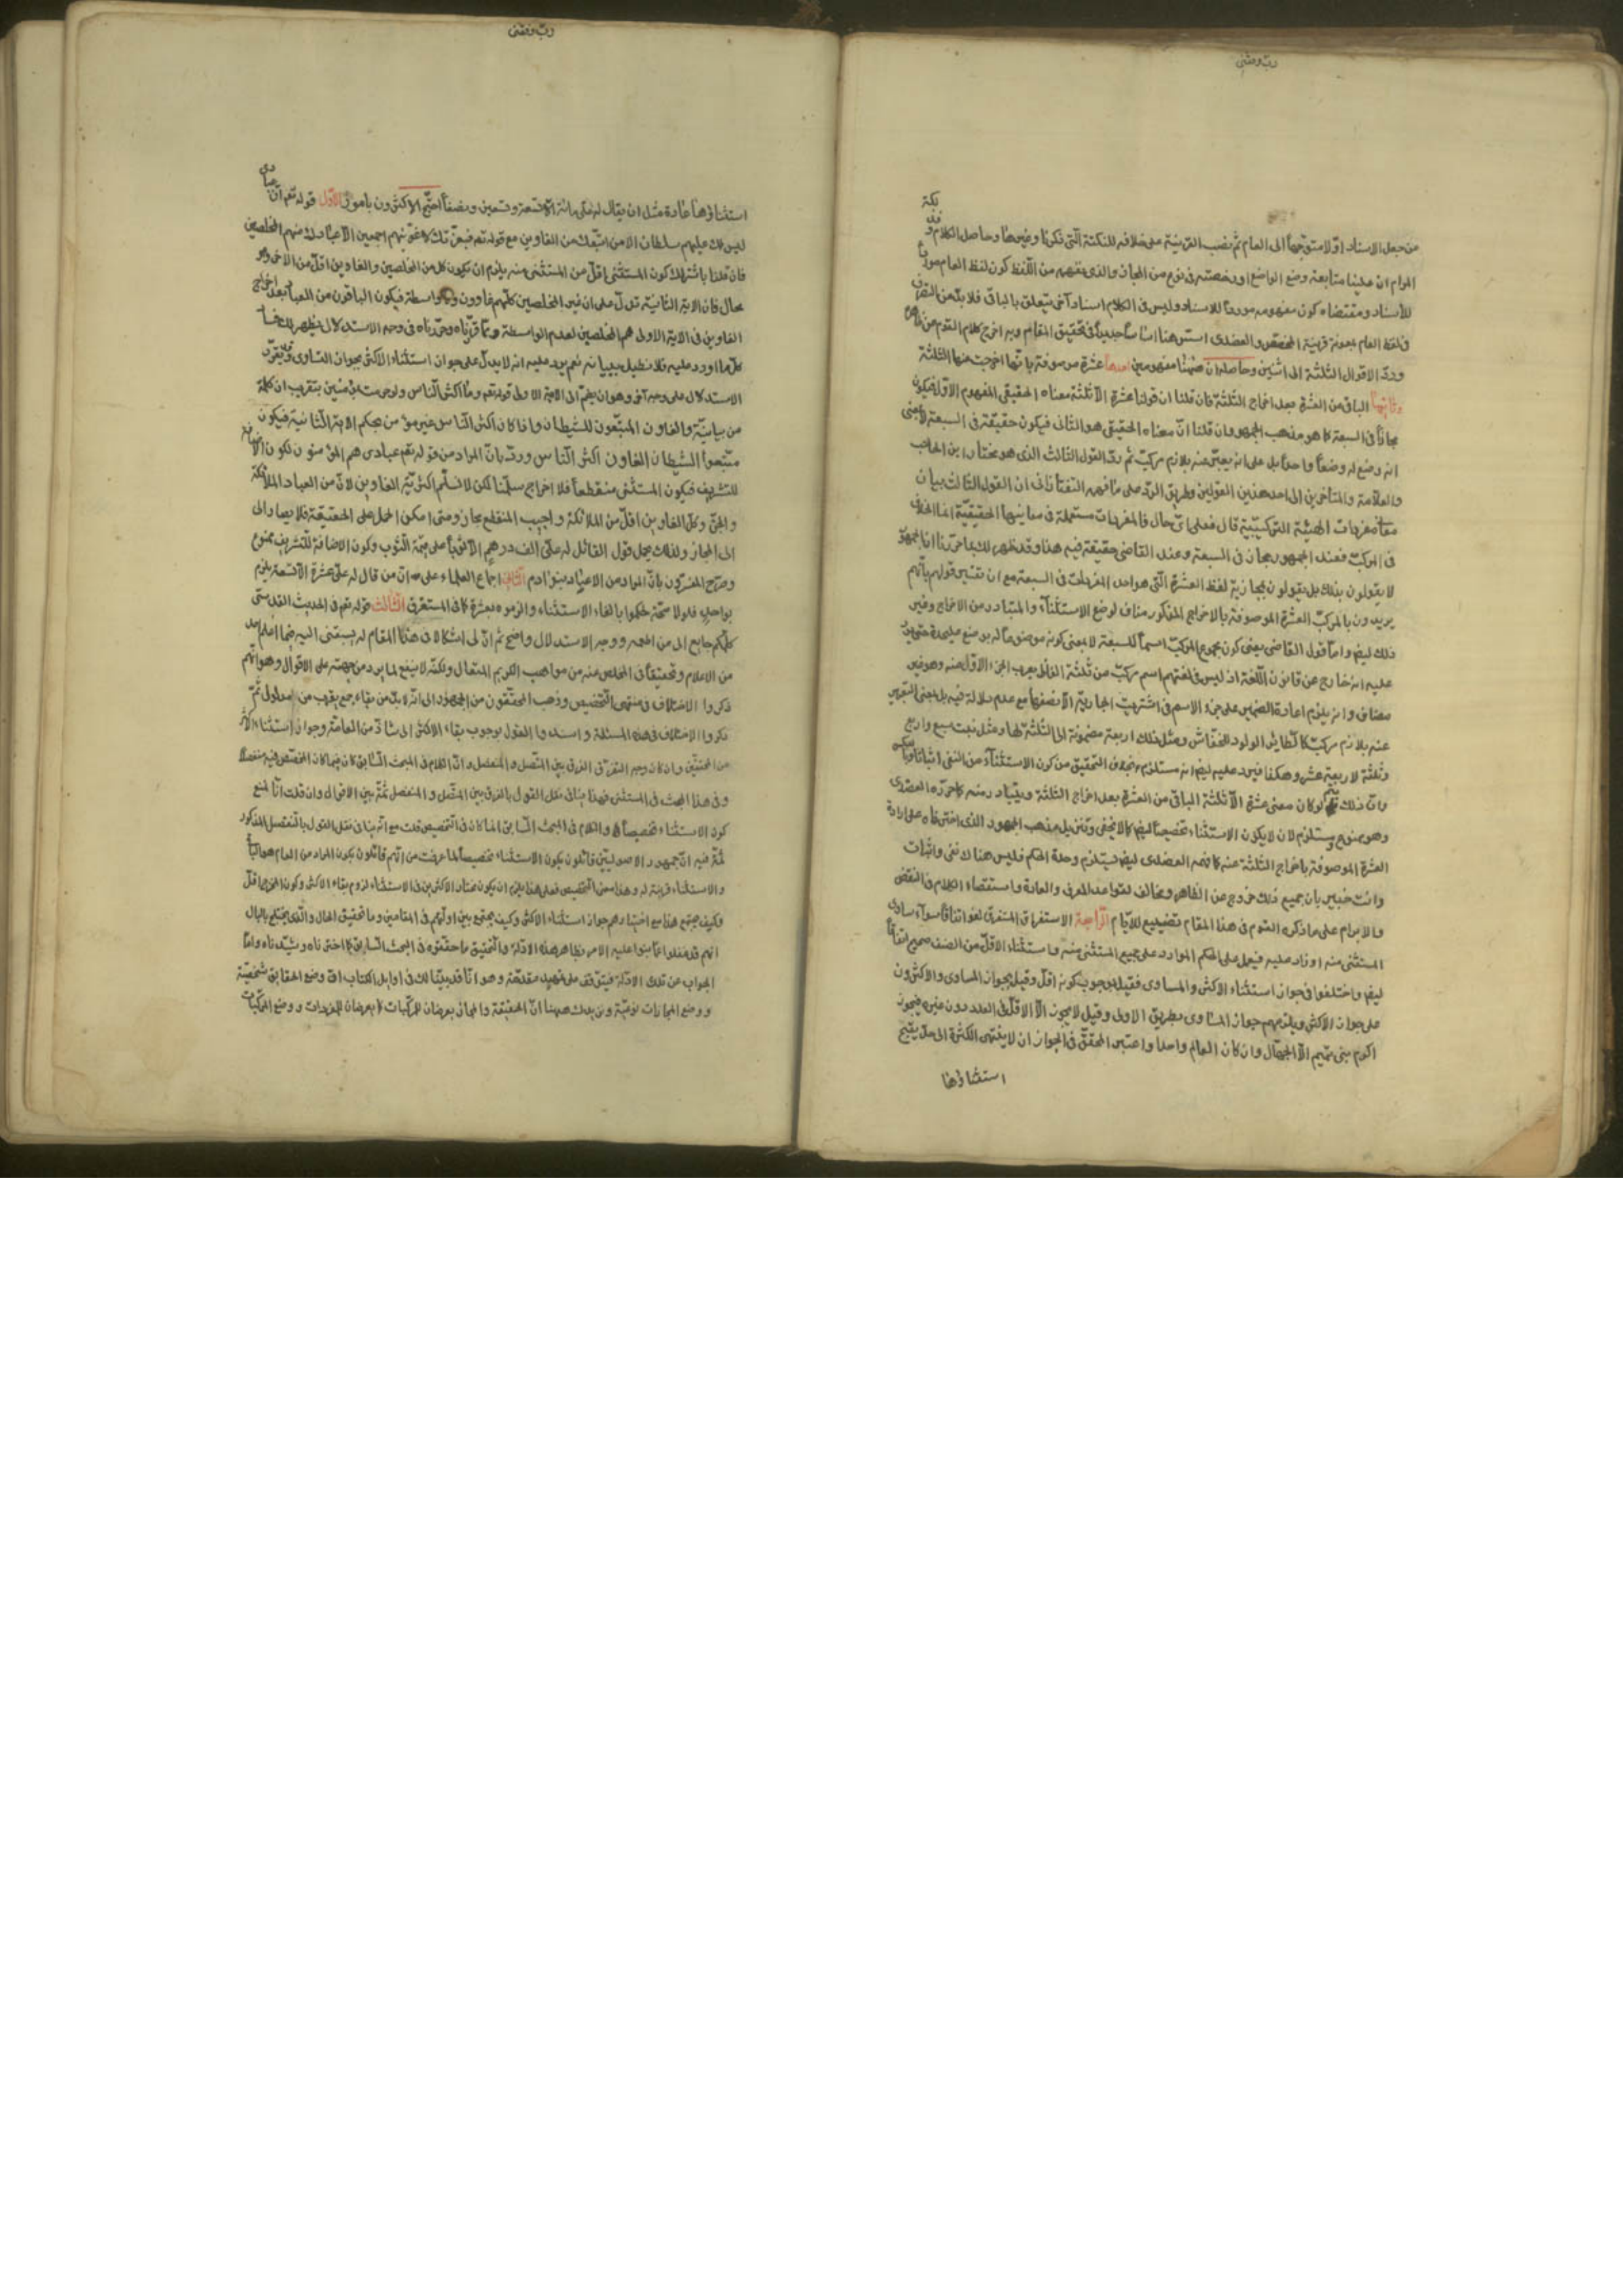 رب وفقنی
من جعل الاسناد اولا متوجها الى العام ثم نصب القرينة على خلافه للنكتة التي ذكرنا وغيرها وحاصل الكلام
المرام ان علينا متابعة وضع الواضع او رخصته في نوع من المجاز والذى نفهمه من اللفظ كون لفظ العام
للاسناد ومقتضاه كون مفهومه موردا للاسناد وليس في الكلام اسناد آخر يتعلق بالباقي فلا بد من التصرف
في لفظ العام بمعونة قرينة المخصص والعضدى اسس هنا اساسا جديدا في تحقيق المقام وبه اخرج كلام القوم عن
ورد الاقوال الثلثة الى اثنين وحاصله ان ههنا مفهومين احدهما عشرة موصوفة بانها اخرجت عنها الثلثة
وثانيهما الباقي من العشرة بعد اخراج الثلثة فان قلنا ان قولنا عشرة الا ثلثة معناه الحقيقى المفهوم الاول فيكون
مجازا في السبعة كما هو مذهب الجمهور وان قلنا ان معناه الحقيقى هو الثانى فيكون حقيقة في السبعة لا بمعنى
انه وضع له وضعا واحدا بل على انه يعبر عنه بلازم مركب ثم رد القول الثالث الذى هو مختار ابن الحاجب
والعلامة والمتاخرين الى احد هذين القولين وطريق الرد على ما فهمه التفتازانى ان القول الثالث بيان
معانى مفردات الهيئة التركيبية قال فعلى اى حال فالمفردات مستعملة في معانيها الحقيقية انما الخلاف
في المركب فعند الجمهور مجاز في السبعة وعند القاضى حقيقة فيه هذا وقد ظهر لك بما حررنا ان الجمهور
لا يقولون بذلك بل يقولون بمجازية لفظ العشرة التى هو احد المفردات في السبعة مع ان تفسير قولهم بانهم
يريدون بالمركب العشرة الموصوفة بالاخراج المذكور مناف لوضع الاستثناء والمتبادر من الاخراج وغير
ذلك ايضا واما قول القاضى يعنى كون مجموع المركب اسما للسبعة لا بمعنى كونه موضوعا له بوضع عليحدة حتى يرد
عليه انه خارج عن قانون اللغة اذ ليس في لغتهم اسم مركب من ثلثة الفاظ يعرب الجزء الاول منه وهو غير
مضاف وانه يلزم اعادة الضمير على جزء الاسم في اشتريت الجارية الا نصفها مع عدم دلالة فيه بل بمعنى التعبير
عنه بلازم مركب كالطائر الولود للخفاش ومثل ذلك اربعة مضمومة الى الثلثة لها ومثل بنت سبع واربع
وثلثة لاربعة عشر وهكذا فيرد عليه ايضا انه مستلزم خلاف التحقيق من كون الاستثناء من النفى اثباتا
وان ذلك لو كان معنى عشرة الا ثلثة الباقى من العشرة بعد اخراج الثلثة ويتبادر منه كما حرره العضدى
وهو ممنوع ومستلزم لان لا يكون الاستثناء تخصيصا ايضا كما لا يخفى وتنزيل مذهب الجمهور الذى اخترناه على ارادة
العشرة الموصوفة باخراج الثلثة عنه كما فهمه العضدى ايضا يستلزم وحدة الحكم فليس هناك نفى واثبات
وانت خبير بان جميع ذلك خروج عن الظاهر ومخالف لقواعد العرف والعادة واستقصاء الكلام في النقض
والابرام على ما ذكره القوم في هذا المقام تضييع للايام الرابعة الاستغراق المستغرق لغو اتفاقا سواء ساوى
المستثنى منه او زاد عليه فيحمل على الحكم الوارد على جميع المستثنى منه واستثناء الاقل من النصف صحيح اتفاقا
ايضا واختلفوا في جواز استثناء الاكثر والمساوى فقيل بوجوب كونه اقل وقيل بجواز المساوى والاكثرون
على جواز الاكثر ويلزمهم جواز المساوى بطريق الاولى وقيل لا يجوز الا الاقل في العدد دون غيره فيجوز
اكرم بنى تميم الا الجهال وان كان العالم واحدا واعتبر المحقق في الجواز ان لا ينتهى الكثرة الى حد يقبح
استثناؤها
رب وفقنی
استثناؤها عادة مثل ان يقال له على مائة الا تسعة وتسعين ونصفا احتج الاكثرون بامور الاول قوله تعم ان عبادى
ليس لك عليهم سلطان الا من اتبعك من الغاوين مع قوله تعم فبعزتك لاغوينهم اجمعين الا عبادك منهم المخلصين
فان قلنا باشتراك كون المستثنى اقل من المستثنى منه يلزم ان يكون كل من المخلصين والغاوين اقل من الآخر وهو
محال فان الاية الثانية تدل على ان غير المخلصين كلهم غاوون ولا واسطة فيكون الباقون من العباد بعد اخراج
الغاوين في الاية الاولى هم المخلصين لعدم الواسطة وبما قررناه وحررناه في وجه الاستدلال يظهر لك
كل ما اورد عليه فلا نطيل ببيانه نعم يرد عليه انه لا يدل على جواز استثناء الاكثر بجواز التساوى وقد يقرر
الاستدلال على وجه آخر وهو ان يضم الى الاية الاولى قوله تعم وما اكثر الناس ولو حرصت بمؤمنين بتقريب ان كلمة
من بيانية والغاوين المتبعون للشيطان واذا كان اكثر الناس غير مؤمن بحكم الاية الثانية فيكون
متبعوا الشيطان الغاوون اكثر الناس ورد بان المراد من قوله تعم عبادى هم المؤمنون لكون الاضافة
للتشريف فيكون المستثنى منقطعا فلا اخراج سلمنا لكن لا نسلم اكثرية الغاوين لان من العباد الملائكة
والجن وكل الغاوين اقل من الملائكة واجيب المنقطع مجاز ومتى امكن الحمل على الحقيقة فلا يصار الى
الى المجاز ولذلك يحمل قول القائل له على الف درهم الا ثوبا على قيمة الثوب وكون الاضافة للتشريف ممنوع
وصرح المفسرون بان المراد من العباد بنو ادم الثانى اجماع العلماء على ان من قال له على عشرة الا تسعة يلزم
بواحد فلولا صحته لحكموا بالغاء الاستثناء والزموه بعشرة كما في المستغرق الثالث قوله تعم في الحديث القدسى
كلكم جايع الا من اطعمته ووجه الاستدلال واضح ثم ان لى اشكالا في هذا المقام لم يسبقنى اليه فيما اعلم احد
من الاعلام وتحقيقا في المخلص عنه من مواهب الكريم المتعال ولكنه لا ينفع لما يرد من جهته على الاقوال وهو انهم
ذكروا الاختلاف في منتهى التخصيص وذهب المحققون من الجمهور الى انه لا بد من بقاء جمع يقرب من مدلول ثم
ذكروا الاختلاف في هذه المسئلة واسندوا القول بوجوب بقاء الاكثر الى شاذ من العامة وجواز استثناء الاكثر
من المحققين وان كان وجه التفرقة الفرق بين المتصل والمنفصل وان الكلام في المبحث السابق كان فيما كان المخصص فيه منفصلا
وفي هذا المبحث في المستثنى فهذا ينافى نقل القول بالفرق بين المتصل والمنفصل ثمة بين الاقوال وان قلت انا نمنع
كون الاستثناء تخصيصا والكلام في المبحث السابق انما كان في التخصيص قلت مع انه ينافى نقل القول بالتفصيل المذكور
ثمة فيه ان جمهور الاصوليين قائلون بكون الاستثناء تخصيصا لما عرفت من انهم قائلون بكون المراد من العام هو الباقى
والاستثناء قرينة له وهذا معنى التخصيص فعلى هذا يلزم ان يكون مختار الاكثرين في الاستثناء لزوم بقاء الاكثر وكون المخرج اقل
فكيف يجتمع هذا مع اختيارهم جواز استثناء الاكثر وكيف يجتمع بين ادلتهم في المقامين وما تحقيق الحال والذى يختلج بالبال
انهم غفلوا عما بنوا عليه الامر بظاهر هذه الادلة والتحقيق ما حققوه في المبحث السابق كما اخترناه وشيدناه واما
الجواب عن تلك الادلة فيتوقف على تمهيد مقدمة وهو انا قد بينا لك في اوايل الكتاب ان وضع الحقايق شخصية
ووضع المجازات نوعية ونزيدك ههنا ان الحقيقة والمجاز يعرضان للمركبات كما يعرضان للمفردات ووضع المركبات